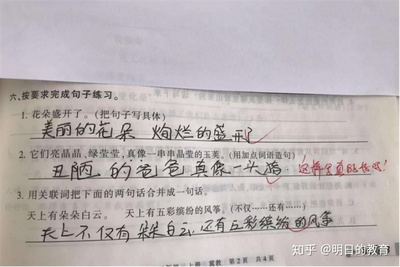 六、按要求完成句子练习。
1. 花朵盛开了。(把句子写具体)
美丽的花朵 绚烂的盛开了
2. 它们亮晶晶,绿莹莹,真像一串串晶莹的玉美。(用加点词语造句)
丑陋的爸爸真像一头
3. 用关联词把下面的两句话合并成一句话。
天上有朵朵白云。 天上有五彩缤纷的风筝。(不仅……还有……)
天上不仅有朵朵白云,还有五彩缤纷的风筝
上册 冀教 第2页 共4页
知乎 @明日的教育